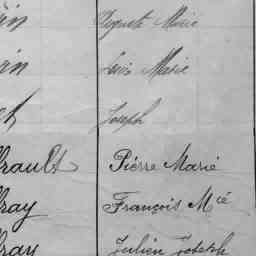 in Auguste Marie
in Louis Marie
et Joseph
rault Pierre Marie
fray François Mié
fray Julien Joseph